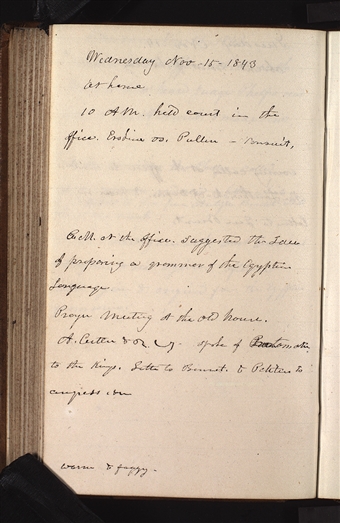 Wednesday Nov. 15 - 1843
At home
10 A.M. held court in the
office. Erskine vs. Pullen -
A.M. at the office. Suggested the Idea
of preparing a grammer of the Egyptian
Language
Prayer Meeting at the old house.
A. Cutler & spoke of
to the Kings. Letter to Bennet. & Petition to
congress
warm & foggy.